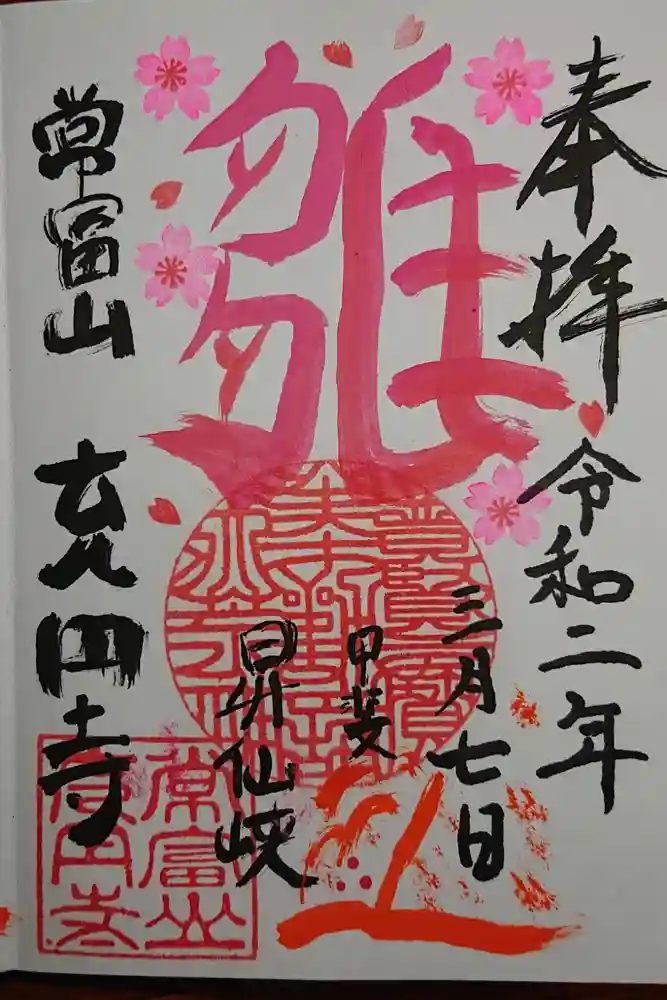 奉拝 令和二年
三月七日
雛
甲斐
昇仙峡
常富山 円寺
常富山
円寺